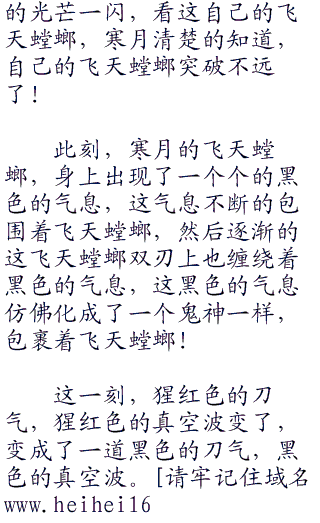 的光芒一闪，看这自己的飞
天螳螂，寒月清楚的知道，
自己的飞天螳螂突破不远
了！
此刻，寒月的飞天螳
螂，身上出现了一个个的黑
色的气息，这气息不断的包
围着飞天螳螂，然后逐渐的
这飞天螳螂双刃上也缠绕着
黑色的气息，这黑色的气息
仿佛化成了一个鬼神一样，
包裹着飞天螳螂！
这一刻，猩红色的刀
气，猩红色的真空波变了，
变成了一道黑色的刀气，黑
色的真空波。[请牢记住域名
www.heihei16